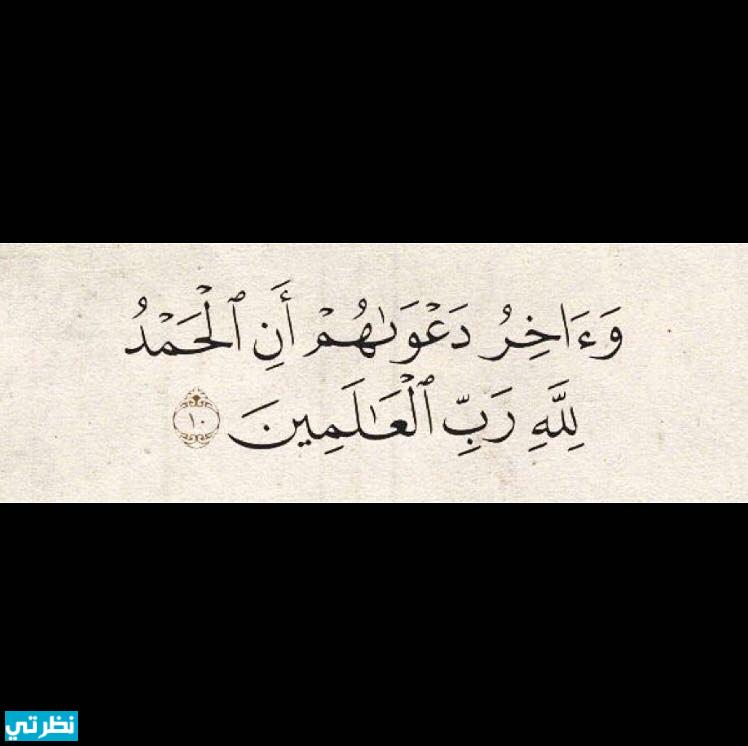 وَءَاخِرُ دَعْوَىٰهُمْ أَنِ ٱلْحَمْدُ
لِلَّهِ رَبِّ ٱلْعَٰلَمِينَ ١٠
نظرتي